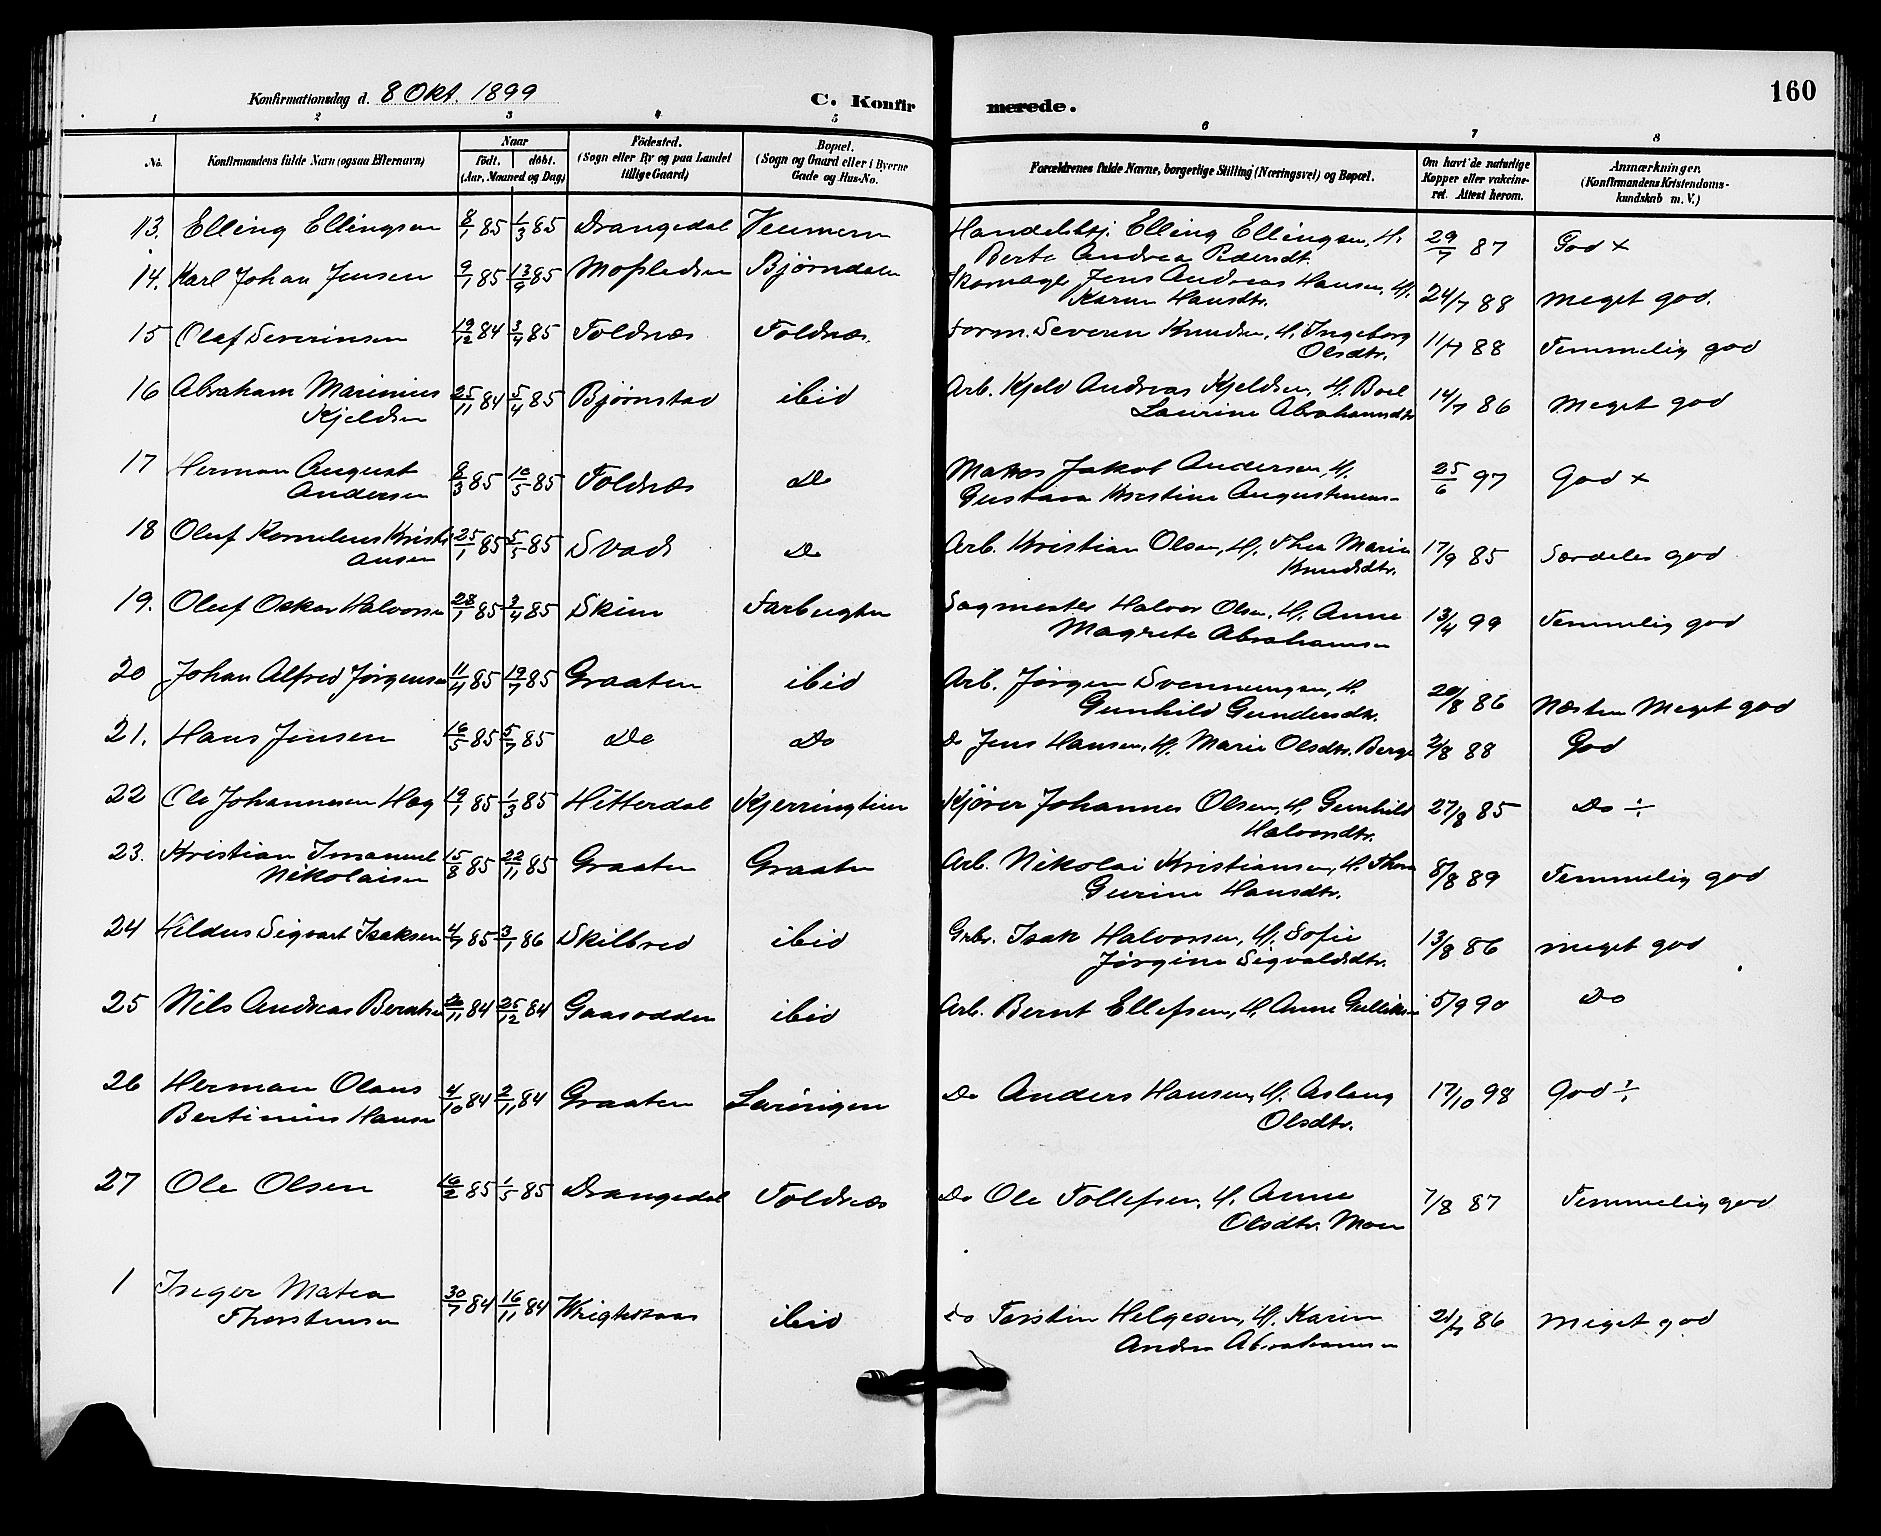 Konfirmationsdag d. 8 Okt. 1899
C. Konfirmerede.
160
1 2 3 4 5 6 7 8
No. Konfirmandens fulde Navn (ogsaa Efternavn) Naar født. døbt. (Aar, Maaned og Dag) Fødested. (Sogn eller By og paa Landet tillige Gaard) Bopæl. (Sogn og Gaard eller i Byerne Gade og Hus-No.
Forældrenes fulde Navne, borgerlige Stilling (Næringsvei) og Bopæl. Om havt de naturlige Kopper eller vakcineret. Attest herom. Anmærkninger. (Konfirmandens Kristendomskundskab m. V.)
13. Elling Ellingsen 8/1 85 1/3 85 Drangedal
Handelsbtj. Elling Ellingsen, H. Berte Andrea Pedersdt. 29/7 87 God +
14. Karl Johan Jensen 9/1 85 Bjørndalen
Skomager Jens Andreas Hansen, H. Karen Hansdtr. 24/7 88 Meget god.
15 Olaf Severinsen 19/12 84 3/4 85 Foldnæs Foldnæs.
Form. Severin Knudsen, H. Ingeborg Olsdtr. 11/7 88 Temmelig god
16 Abraham Marinius Kjeldsen 25/11 84 5/4 85 Bjørnstad ibid
Arb. Kjeld Andreas Kjeldsen, H. Boel Laurine Abrahamsdtr 14/7 86 Meget god
17 Herman August Andersen 8/3 85 10/5 85 Foldnæs Do
Jakob Andersen H. Gustava Kristine 25/6 97 God +
18 Oluf Kornelius Kristiansen 25/1 85 5/5 85 Svad Do
Arb. Kristian Olsen, H. Thea Marie Knudsdtr. 17/9 85 Særdeles god
19. Oluf Oskar Halvorsen 28/1 85 3/4 85 Skien Farbugten
Sagmester Halvor Olsen, H. Anne Magrete Abrahamsen 13/4 99 Temmelig god
20 Johan Alfred Jørgensen 11/4 85 19/7 85 Graaten ibid
Arb. Jørgen Svennungsen, H. Gunhild Gundersdtr. 20/8 86 Næsten Meget god
21. Hans Jensen 16/5 85 5/7 85 Do Do
Do Jens Hansen, H. Marie Olsdtr. Berge 2/8 88 God
22 Ole Johannesen Hæg 19/1 85 1/3 85 Hitterdal Kjerringtien
Kjører Johannes Olsen, H. Gunhild Halvorsdtr. 27/8 85 Do ÷
23. Kristian Imanuel Nikolaisen 15/8 85 22/11 85 Graaten Graaten
Arb. Nikolai Kristiansen, H. Thea Gurine Hansdtr. 8/8 89 Temmelig god
24 Hildus Sigvart Isaksen 4/7 85 3/1 86 Skilbred ibid
Grbr. Isak Halvorsen, H. Sofie Jørgine Sigvaldsdtr. 13/8 86 Meget god
25 Nils Andreas Berntsen 84 25/12 84 Gaasodden ibid
Arb. Bernt Ellefsen, H. Anne Gulliksen 5/9 90 Do
26 Herman Olaus Bertinius Hansen 4/10 84 2/11 84 Graaten
Do Anders Hansen, H. Aslaug Olsdtr. 17/10 98 God ÷
27 Ole Olsen 16/2 85 1/5 85 Drangedal Foldnæs
Do Ole Tollefsen, H. Anne Olsdtr. Moen 7/8 87 Temmelig god
1 Inger Matea Thorstensen 30/7 84 16/11 84 ibid
Do Torstein Helgesen, H. Karen Andrea Abrahamsen 86 Meget god